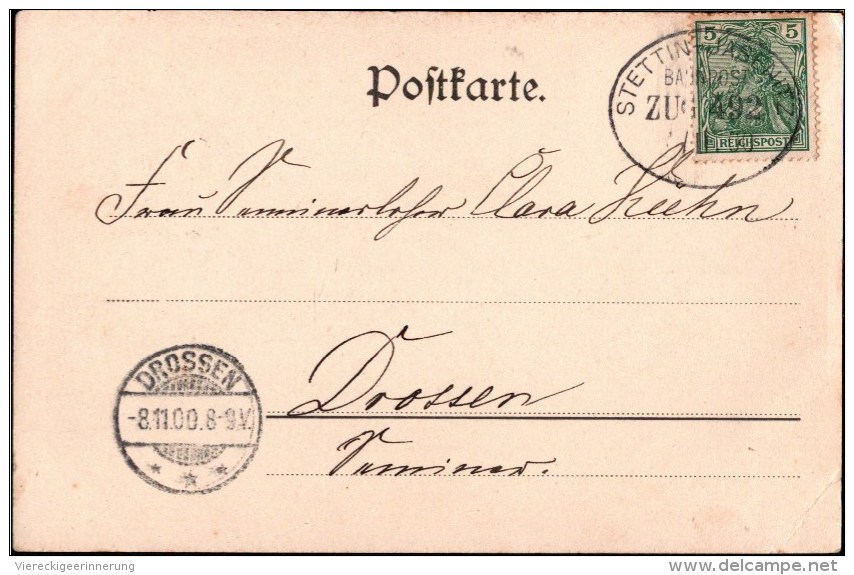 Postkarte.
5 5
REICHSPOST
BAHNPOST
ZUG 492
Frau Seminarlehrer Clara Kühn
Drossen
Seminar.
DROSSEN
-8.11.00.8-9V.
Viereckigeerinnerung
delcampe.net